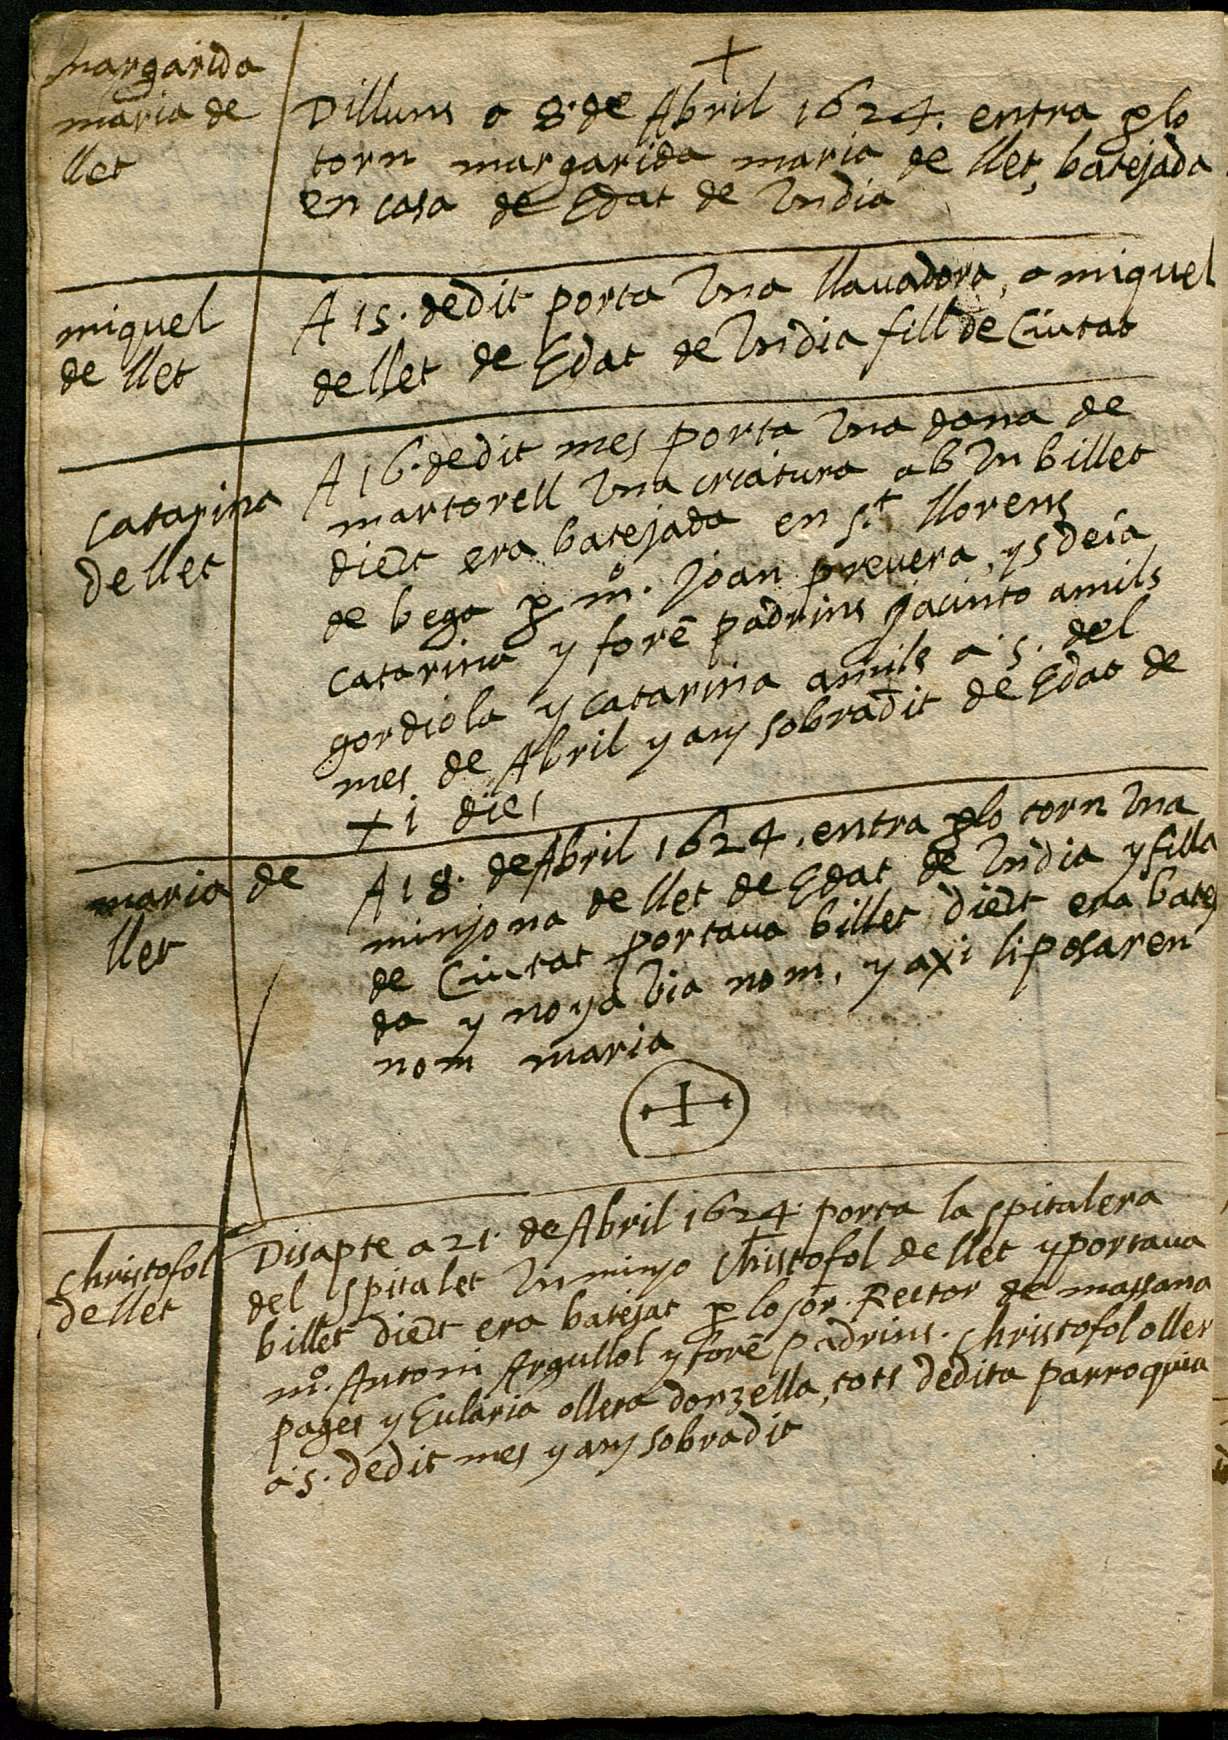 margarida
maria de
llet
Dilluns a 8. de Abril 1624. entra p lo
torn margarida maria de llet, batejada
en casa de Edat de Vn dia
miquel
de llet
A 15. de dit porta Vna llauadora, a miquel
de llet de Edat de Vn dia fill de Ciutat
Catarina
de llet
A 16. de dit mes porta Vna dona de
martorell Vna criatura ab Vn billet
dient era batejada en St llorens
de bega p mº. Joan prevera, y s deia
Catarina y forē padrins Jacinto amils
gordiola y Catarina amils a 5. del
mes de Abril y any sobradit de Edat de
XI dies
maria de
llet
A 18. de Abril 1624. entra p lo torn Vna
minyona de llet de Edat de Vn dia y filla
de Ciutat portaua billet dient era bate
da y noya Via nom, y axi li posaren
nom maria
Christofol
de llet
Disapte a 21. de Abril 1624 porta la spitalera
del spitalet Vn minyo Christofol de llet y portaua
billet dient era batejat p lo sor. Rector de massana
mº. Antoni Argullol y forē padrins. Christofol oller
pages y Eularia ollera donzella, tots de dita parroquia
a 5. de dit mes y any sobradit